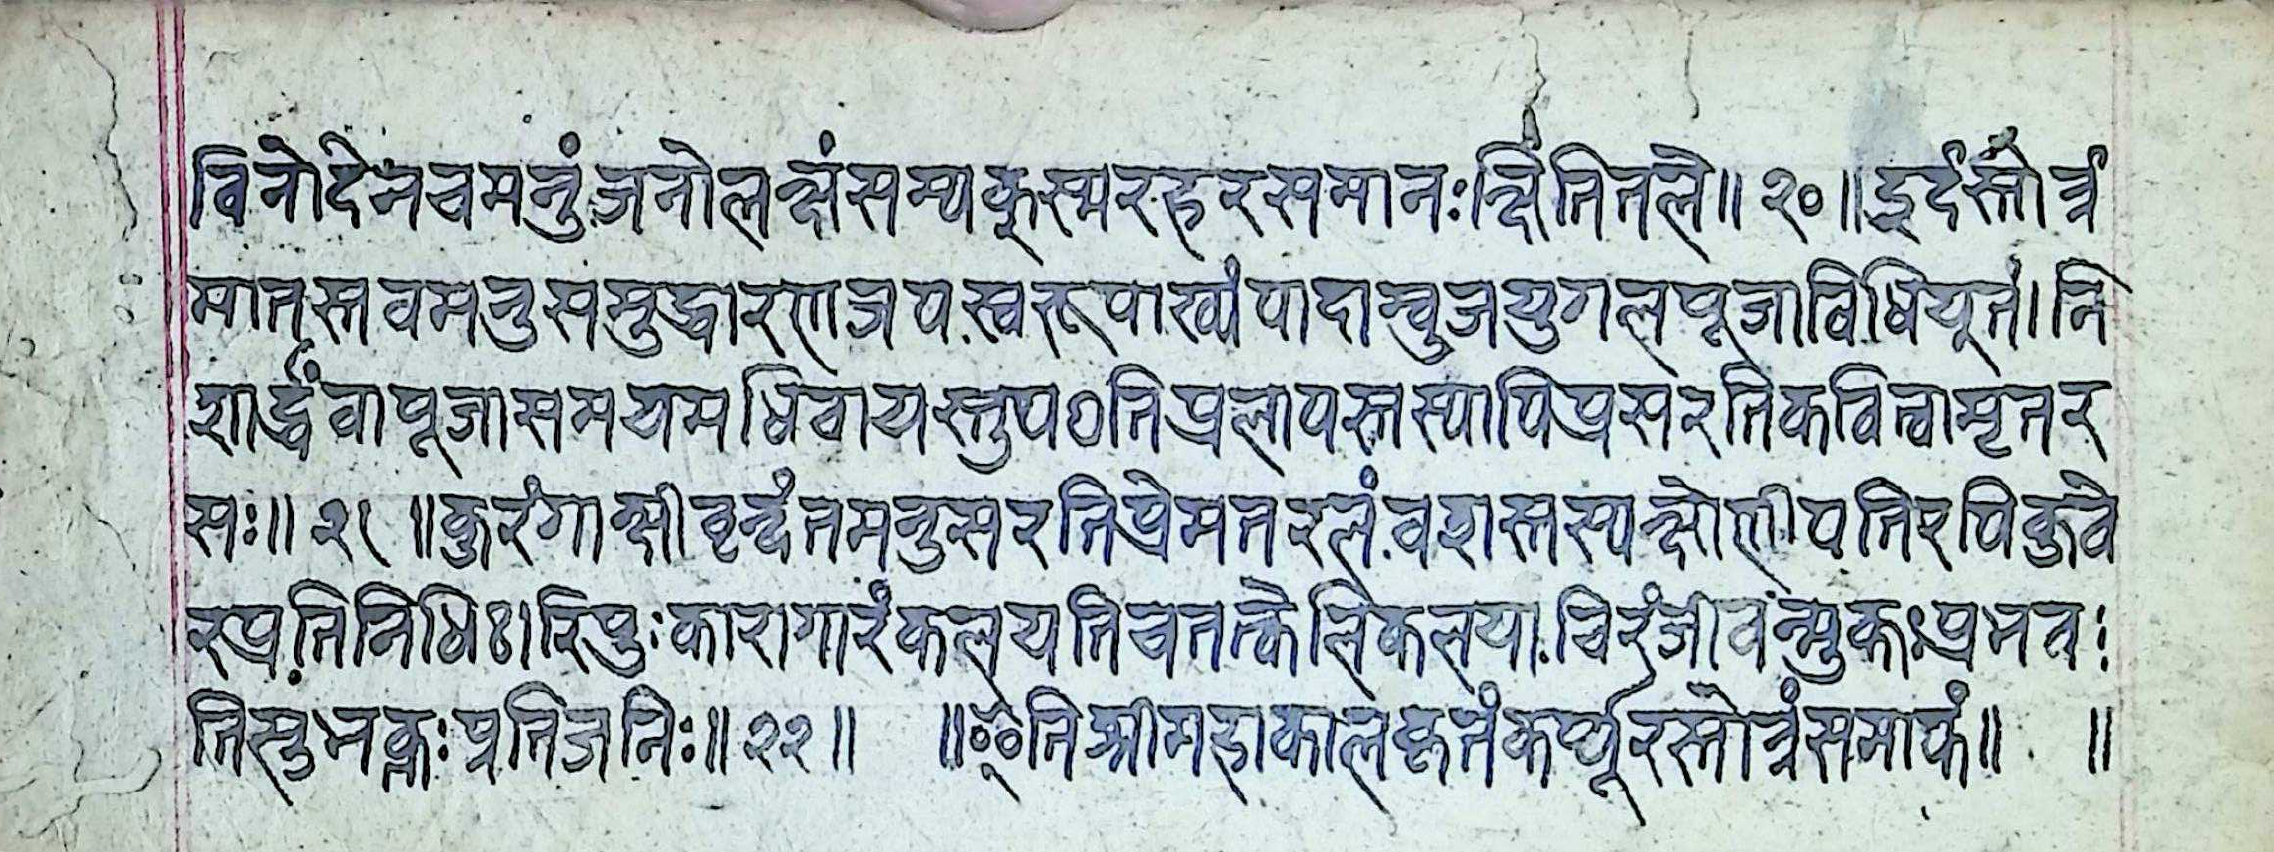 विनोदेनचमनुंजनोलक्षंसम्यक्स्मरहरसमानःक्षितितले॥२०॥इदंस्तोत्रं
मातृस्तवमनुसमुद्धारणजपस्वरूपाख्यंपादाम्बुजयुगलपूजाविधियुतं।नि
शार्द्धंवापूजासमयमधिवायस्तुपठतिप्रलापस्तस्यापिप्रसरतिकवित्वामृतर
सः॥२१॥कुरंगाक्षीवृन्दंतमनुसरतिप्रेमतरलंवशस्तस्यक्षोणीपतिरपिकुवे
रप्रतिनिधिः।रिपुःकारागारंकलयतिचतत्केलिकलयाचिरंजीवन्मुक्तःप्रभव
तिसुभक्तःप्रतिजनिः॥२२॥ ॥इतिश्रीमहाकालकृतंकर्प्पूरस्तोत्रंसमाप्तं॥ ॥